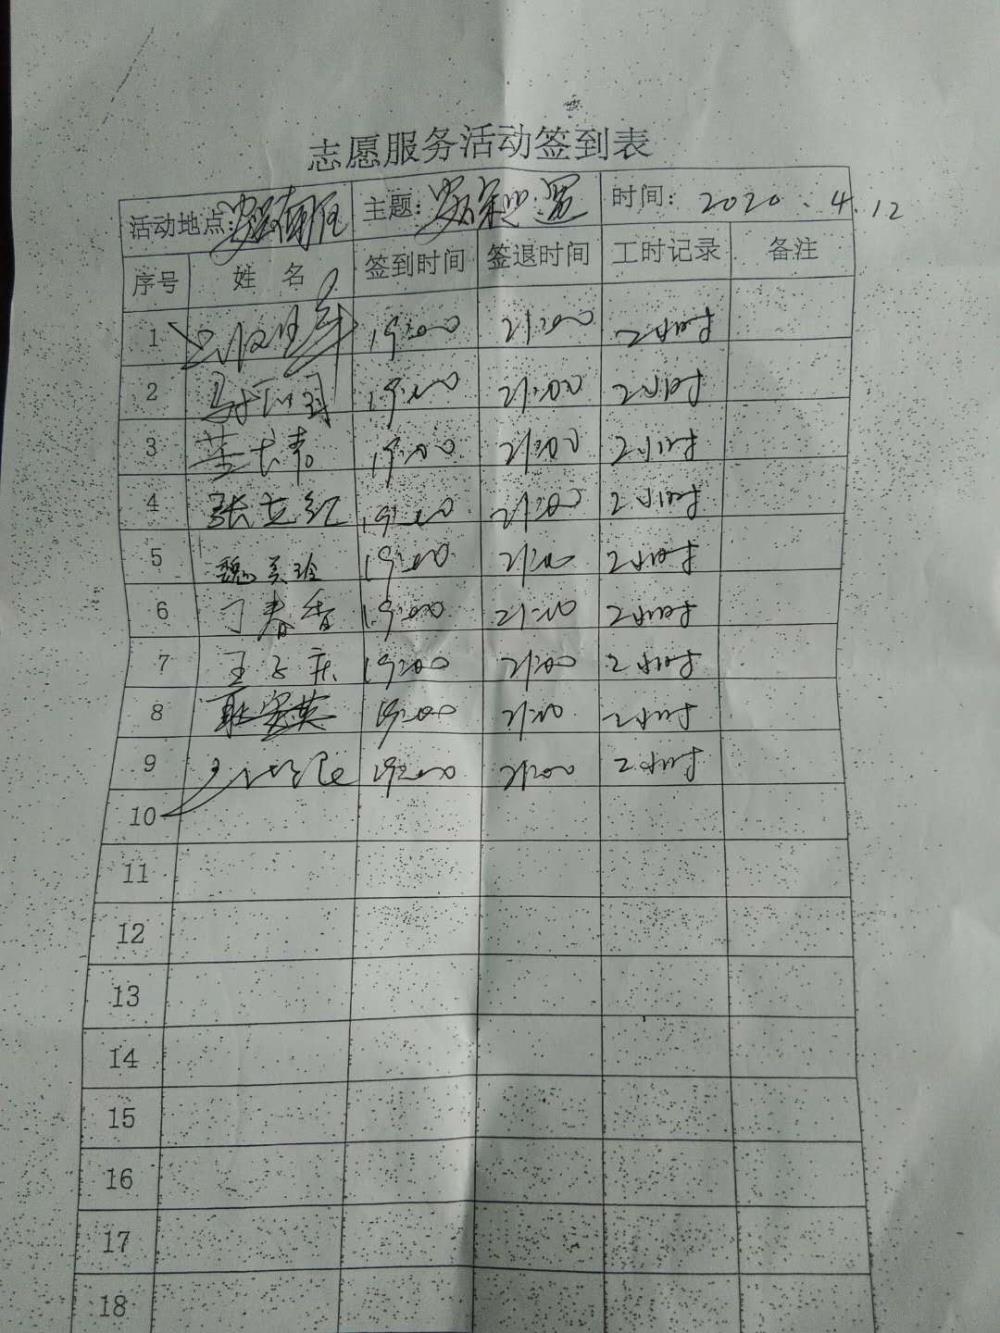 志愿服务活动签到表
活动地点: 主题: 时间: 2020.4.12
序号 姓名 签到时间 签退时间 工时记录 备注
1 19:00 21:00 2小时
2 19:00 21:00 2小时
3 19:00 21:00 2小时
4 张克红 19:00 21:00 2小时
5 魏美玲 19:00 21:00 2小时
6 丁春香 19:00 21:00 2小时
7 19:00 21:00 2小时
8 耿宝英 19:00 21:00 2小时
9 19:00 21:00 2小时
10
11
12
13
14
15
16
17
18